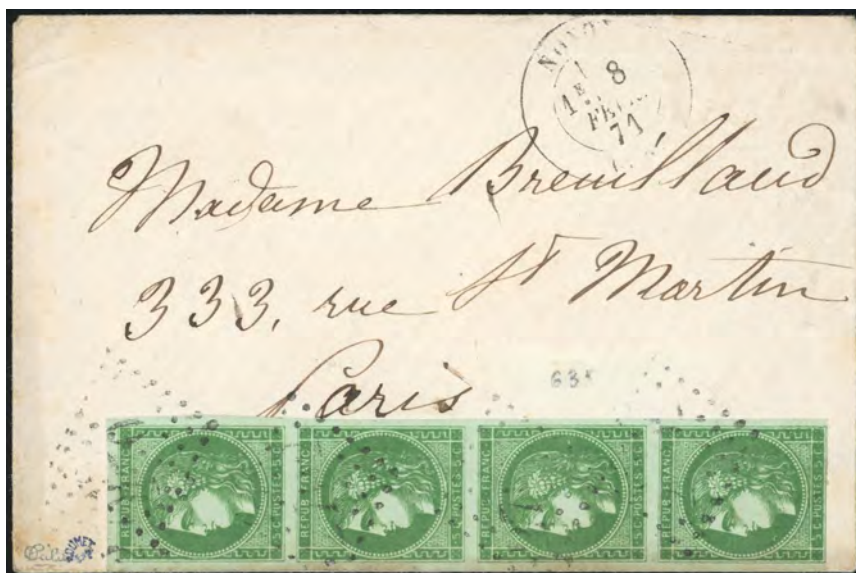 8
1E
FEVR.
71
Madame Breuilland
333, rue St Martin
Paris
63
REPUB. FRANC. 5 C. POSTES 5 C.
REPUB. FRANC. 5 C. POSTES 5 C.
REPUB. FRANC. 5 C. POSTES 5 C.
REPUB. FRANC. 5 C. POSTES 5 C.